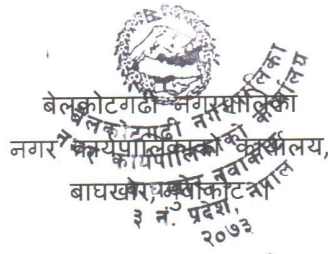 बेलकोटगढी नगरपालिका
नगर कार्यपालिकाको कार्यालय,
बाघखोर, नुवाकोट
बेलकोटगढी नगरपालिका
नगर कार्यपालिकाको कार्यालय
नुवाकोट
३ नं. प्रदेश, नेपाल
२०७३